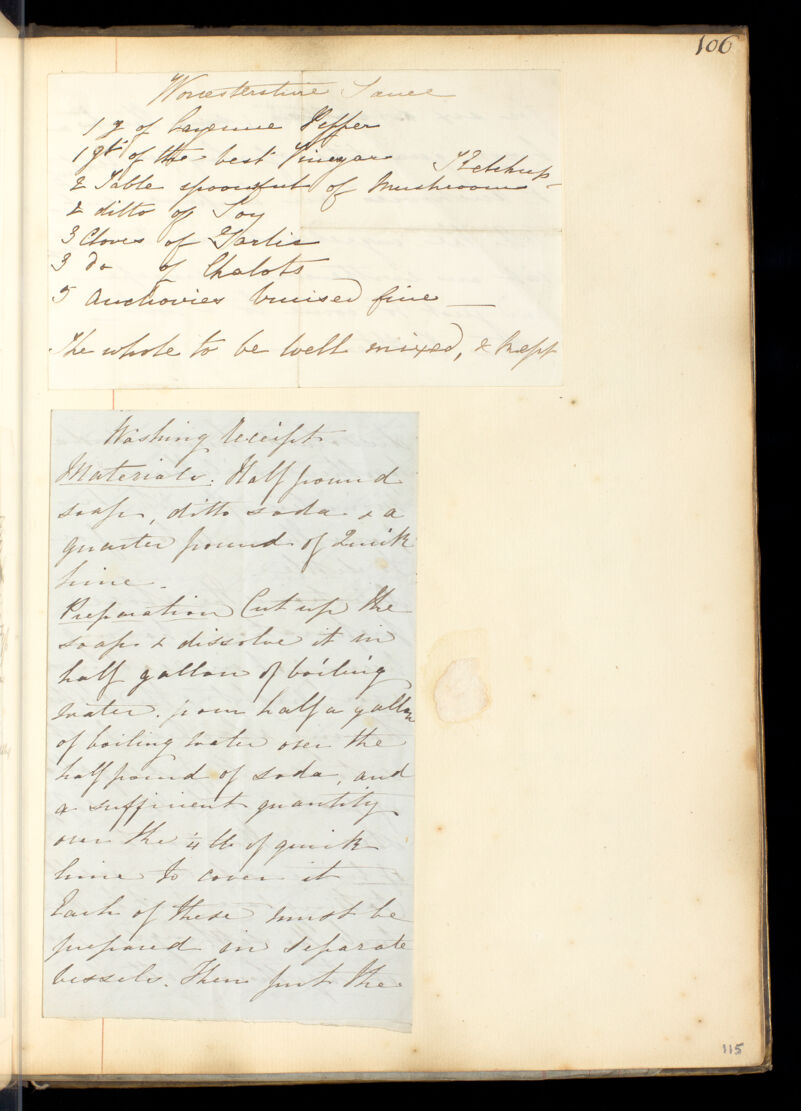 106
Worcestershire Sauce
1 of Cayenne Pepper
1 qt of the best Vinegar
2 Table spoonfut of Mushroom Ketchup
2 ditto of Soy
3 Cloves of Garlic
3 Do of Chalots
5 Anchovies bruised fine
The whole to be well mixed, & kept
Washing Receipt
Materials: Half pound
soap, ditto soda & a
quarter pound of Quick
lime.
Preparation Cut up the
soap & dissolve it in
half gallon of boiling
water. pour half a gallon
of boiling water over the
half pound of soda, and
a sufficient quantity
over the ¼ lb of quick
lime to cover it
Each of these must be
prepared in separate
vessels. Then put the
115